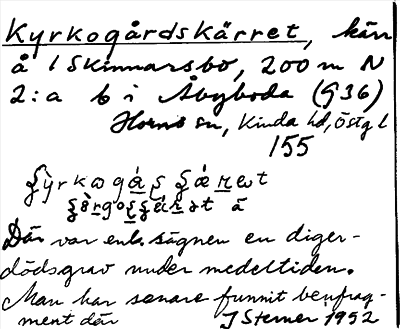 Kyrkogårdskärret, kärr
å l Skinnarsbo, 200 m N
2:a b i Åbyboda (G36)
Horns sn, Kinda hd, Östg l
155
Där var enl. sägnen en diger-
dödsgrav under medeltiden.
Man har senare funnit benfrag-
ment där J Sterner 1952